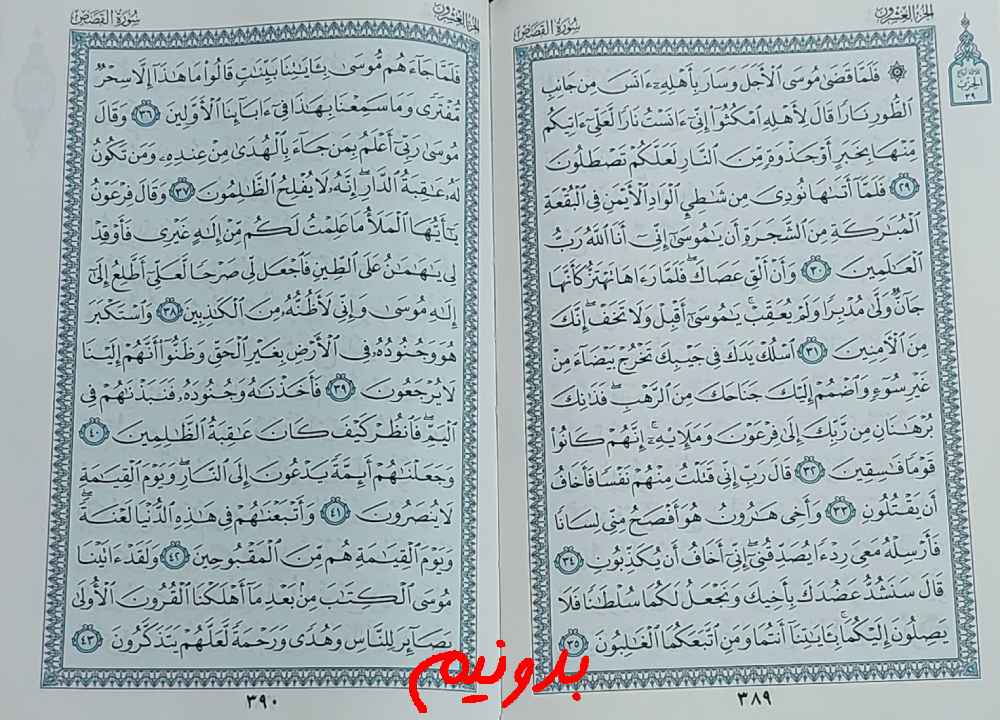 الجزء العشرون
سورة القصص
۞ فَلَمَّا قَضَىٰ مُوسَى ٱلْأَجَلَ وَسَارَ بِأَهْلِهِۦٓ ءَانَسَ مِن جَانِبِ
ٱلطُّورِ نَارًا قَالَ لِأَهْلِهِ ٱمْكُثُوٓا۟ إِنِّىٓ ءَانَسْتُ نَارًا لَّعَلِّىٓ ءَاتِيكُم
مِّنْهَا بِخَبَرٍ أَوْ جَذْوَةٍ مِّنَ ٱلنَّارِ لَعَلَّكُمْ تَصْطَلُونَ
﴿٢٩﴾ فَلَمَّآ أَتَىٰهَا نُودِىَ مِن شَٰطِئِ ٱلْوَادِ ٱلْأَيْمَنِ فِى ٱلْبُقْعَةِ
ٱلْمُبَٰرَكَةِ مِنَ ٱلشَّجَرَةِ أَن يَٰمُوسَىٰٓ إِنِّىٓ أَنَا ٱللَّهُ رَبُّ
ٱلْعَٰلَمِينَ ﴿٣٠﴾ وَأَنْ أَلْقِ عَصَاكَ ۖ فَلَمَّا رَءَاهَا تَهْتَزُّ كَأَنَّهَا
جَآنٌّ وَلَّىٰ مُدْبِرًا وَلَمْ يُعَقِّبْ ۚ يَٰمُوسَىٰٓ أَقْبِلْ وَلَا تَخَفْ ۖ إِنَّكَ
مِنَ ٱلْءَامِنِينَ ﴿٣١﴾ ٱسْلُكْ يَدَكَ فِى جَيْبِكَ تَخْرُجْ بَيْضَآءَ مِنْ
غَيْرِ سُوٓءٍ وَٱضْمُمْ إِلَيْكَ جَنَاحَكَ مِنَ ٱلرَّهْبِ ۖ فَذَٰنِكَ
بُرْهَٰنَانِ مِن رَّبِّكَ إِلَىٰ فِرْعَوْنَ وَمَلَإِي۟هِۦٓ ۚ إِنَّهُمْ كَانُوا۟
قَوْمًا فَٰسِقِينَ ﴿٣٢﴾ قَالَ رَبِّ إِنِّى قَتَلْتُ مِنْهُمْ نَفْسًا فَأَخَافُ
أَن يَقْتُلُونِ ﴿٣٣﴾ وَأَخِى هَٰرُونُ هُوَ أَفْصَحُ مِنِّى لِسَانًا
فَأَرْسِلْهُ مَعِىَ رِدْءًا يُصَدِّقُنِىٓ ۖ إِنِّىٓ أَخَافُ أَن يُكَذِّبُونِ ﴿٣٤﴾
قَالَ سَنَشُدُّ عَضُدَكَ بِأَخِيكَ وَنَجْعَلُ لَكُمَا سُلْطَٰنًا فَلَا
يَصِلُونَ إِلَيْكُمَا ۚ بِـَٔايَٰتِنَآ أَنتُمَا وَمَنِ ٱتَّبَعَكُمَا ٱلْغَٰلِبُونَ ﴿٣٥﴾
٣٨٩
الحزب
٣٩
الجزء العشرون
سورة القصص
فَلَمَّا جَآءَهُم مُّوسَىٰ بِـَٔايَٰتِنَا بَيِّنَٰتٍ قَالُوا۟ مَا هَٰذَآ إِلَّا سِحْرٌ
مُّفْتَرًى وَمَا سَمِعْنَا بِهَٰذَا فِىٓ ءَابَآئِنَا ٱلْأَوَّلِينَ ﴿٣٦﴾ وَقَالَ
مُوسَىٰ رَبِّىٓ أَعْلَمُ بِمَن جَآءَ بِٱلْهُدَىٰ مِنْ عِندِهِۦ وَمَن تَكُونُ
لَهُۥ عَٰقِبَةُ ٱلدَّارِ ۖ إِنَّهُۥ لَا يُفْلِحُ ٱلظَّٰلِمُونَ ﴿٣٧﴾ وَقَالَ فِرْعَوْنُ
يَٰٓأَيُّهَا ٱلْمَلَأُ مَا عَلِمْتُ لَكُم مِّنْ إِلَٰهٍ غَيْرِى فَأَوْقِدْ
لِى يَٰهَٰمَٰنُ عَلَى ٱلطِّينِ فَٱجْعَل لِّى صَرْحًا لَّعَلِّىٓ أَطَّلِعُ إِلَىٰٓ
إِلَٰهِ مُوسَىٰ وَإِنِّى لَأَظُنُّهُۥ مِنَ ٱلْكَٰذِبِينَ ﴿٣٨﴾ وَٱسْتَكْبَرَ
هُوَ وَجُنُودُهُۥ فِى ٱلْأَرْضِ بِغَيْرِ ٱلْحَقِّ وَظَنُّوٓا۟ أَنَّهُمْ إِلَيْنَا
لَا يُرْجَعُونَ ﴿٣٩﴾ فَأَخَذْنَٰهُ وَجُنُودَهُۥ فَنَبَذْنَٰهُمْ فِى
ٱلْيَمِّ ۖ فَٱنظُرْ كَيْفَ كَانَ عَٰقِبَةُ ٱلظَّٰلِمِينَ ﴿٤٠﴾
وَجَعَلْنَٰهُمْ أَئِمَّةً يَدْعُونَ إِلَى ٱلنَّارِ ۖ وَيَوْمَ ٱلْقِيَٰمَةِ
لَا يُنصَرُونَ ﴿٤١﴾ وَأَتْبَعْنَٰهُمْ فِى هَٰذِهِ ٱلدُّنْيَا لَعْنَةً ۖ
وَيَوْمَ ٱلْقِيَٰمَةِ هُم مِّنَ ٱلْمَقْبُوحِينَ ﴿٤٢﴾ وَلَقَدْ ءَاتَيْنَا
مُوسَى ٱلْكِتَٰبَ مِنۢ بَعْدِ مَآ أَهْلَكْنَا ٱلْقُرُونَ ٱلْأُولَىٰ
بَصَآئِرَ لِلنَّاسِ وَهُدًى وَرَحْمَةً لَّعَلَّهُمْ يَتَذَكَّرُونَ ﴿٤٣﴾
٣٩٠
بدونیم